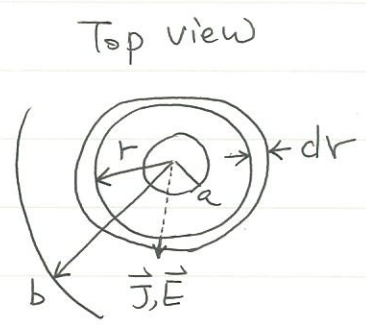 Top view
r
dr
a
b
J⃗, E⃗